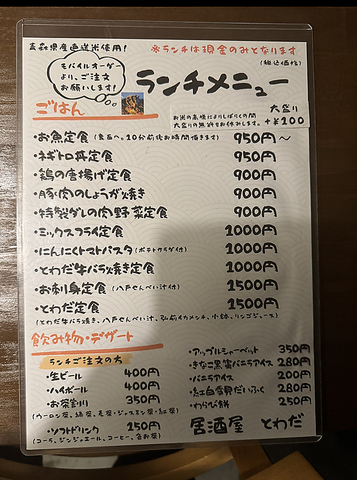 青森県産直送米使用!
※ランチは現金のみとなります
(税込価格)
モバイルオーダー
より、ご注文
お願いします!
ランチメニュー
ごはん
お米の高騰によりしばらくの間
大盛りの無料をお休みします。
大盛り
+¥100
・お魚定食 950円〜
・ネギトロ丼定食 950円
・鶏の唐揚げ定食 900円
・豚肉のしょうが焼き 900円
・特製ダレの肉野菜定食 900円
・ミックスフライ定食 1000円
・にんにくトマトパスタ(ポテトサラダ付) 1000円
・とわだ牛バラ焼き定食 1200円
・お刺身定食(八戸せんべい汁付) 1500円
・とわだ定食 1500円
(とわだ牛バラ焼き、八戸せんべい汁、弘前イカメンチ、小鉢、リンゴジュース)
飲み物・デザート
ランチご注文の方
・生ビール 400円
・ハイボール 400円
・お茶割り 350円
(ウーロン茶、緑茶、麦茶・ジャスミン茶・紅茶)
・ソフトドリンク 250円
(コーラ、ジンジャエール、コーヒー、各お茶)
・アップルシャーベット 350円
・きなこ黒蜜バニラアイス 280円
・バニラアイス 200円
・紅白雪見だいふく 280円
・わらび餅 250円
居酒屋 とわだ